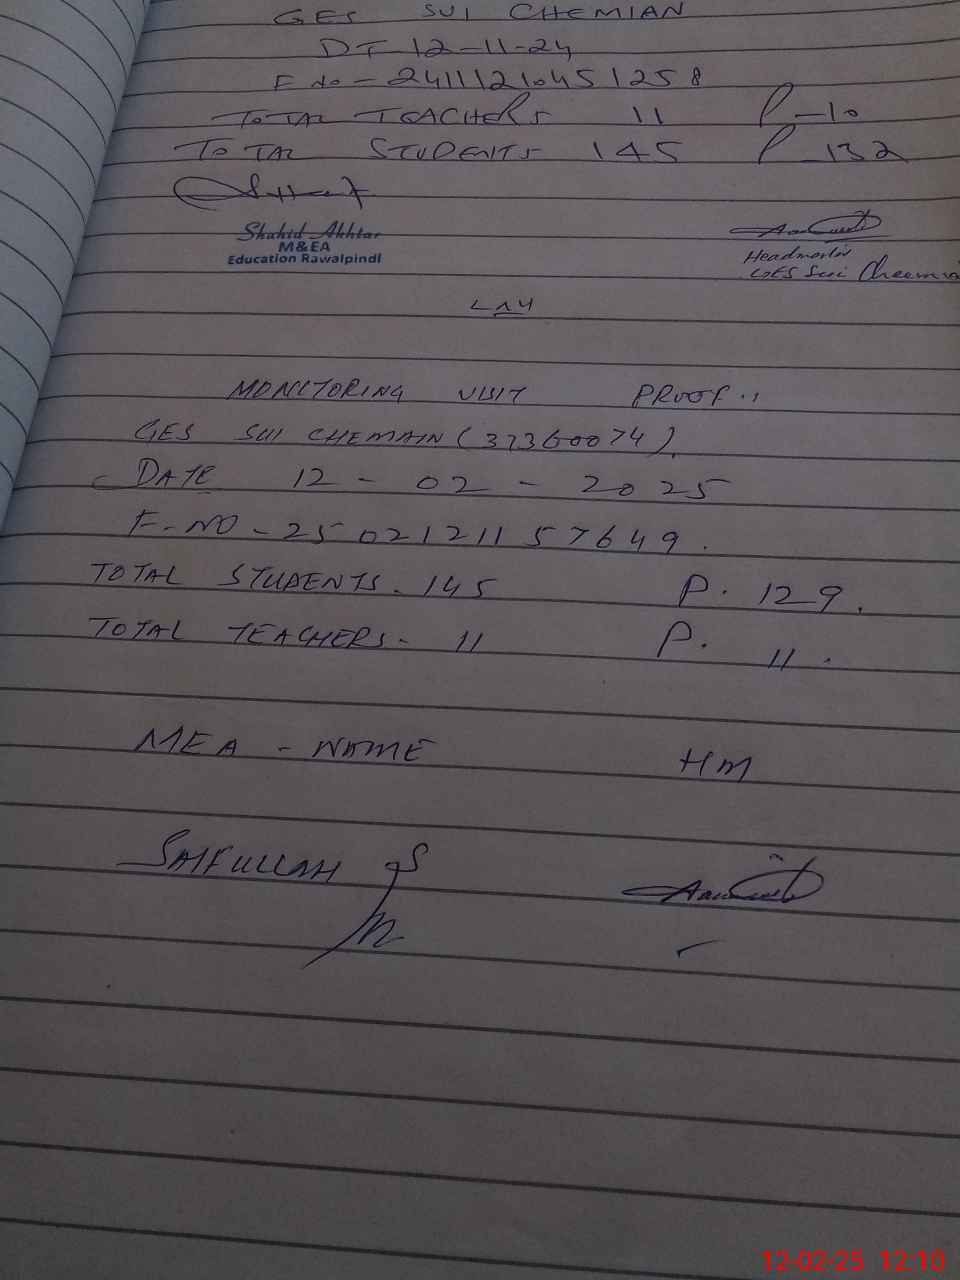 GES SUI CHEMIAN
DT 12-11-24
F No - 2411121045 1258
TOTAL TEACHERS 11 P-10
TOTAL STUDENTS 145 P 132
Shahid Akhtar
M&EA
Education Rawalpindi
Headmaster
GES Sui Cheemia
MONITORING VISIT PROOF..
GES SUI CHEMAIN (37360074).
DATE 12 - 02 - 2025
F-NO - 250212 11 57649.
TOTAL STUDENTS. 145 P. 129.
TOTAL TEACHERS - 11 P. 11.
MEA - NAME HM
SAIFULLAH
12-02-25 12:10